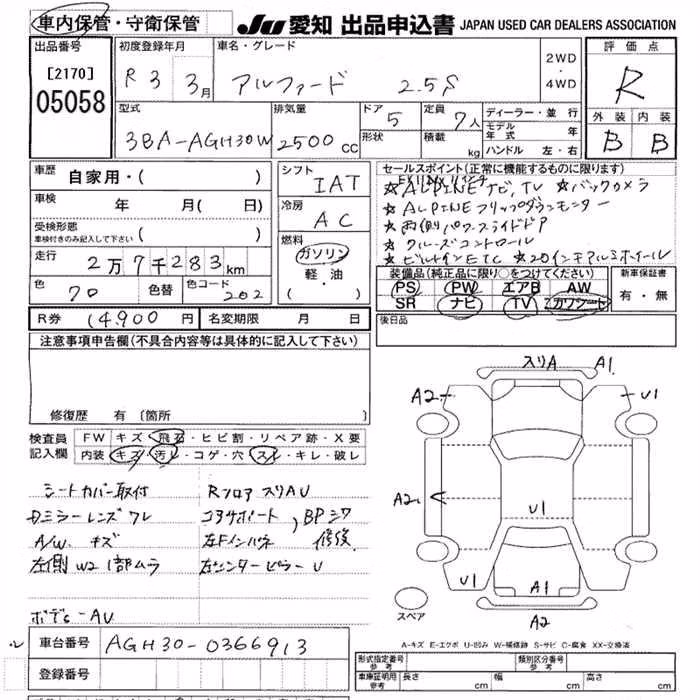 車内保管・守衛保管 JU 愛知 出品申込書 JAPAN USED CAR DEALERS ASSOCIATION
出品番号 初度登録年月 車名・グレード 2WD・4WD 評価点
[2170] R3 3月 アルファード 2.5S R
05058
型式 排気量 ドア 5 定員 7人 ディーラー・並行 外装 内装
3BA-AGH30W 2500cc 形状 積載 kg モデル年式 年 B B
ハンドル 左・右
車歴 自家用・( ) シフト IAT セールスポイント(正常に機能するものに限ります)
☆ALPINEナビ,TV ☆バックカメラ
車検 年 月( 日) 冷房 AC ☆ALPINEフリップダウンモニター
受検形態 車検付きのみ記入して下さい ( ) ☆両側パワースライドドア
走行 2万7千283km 燃料 ガソリン ☆クルーズコントロール
軽・油 ☆ビルトインETC ☆20インチアルミホイール
色 70 色替 色コード 202 ・( ) 装備品(純正品に限り○をつけてください) 新車保証書
PS PW エアB AW 有・無
SR ナビ TV カワシート
R券 14,900円 名変期限 月 日 後日品
注意事項申告欄(不具合内容等は具体的に記入して下さい)
修復歴 有 [箇所
検査員記入欄 FW キズ・飛石・ヒビ割・リペア跡・X要
内装 キズ・汚レ・コゲ・穴・スレ・キレ・破レ
シートカバー取付 Rフロア スリAU
ミラーレンズワレ コアサポート, BPシワ
A/W. キズ 左Fインパネ 修復
左側W2 1部ムラ 左センターピラーU
ボデーAU
スリA A1
A2 U1
A2
U1
U1 A1
A2
スペア
A-キズ E-エクボ U-凹み W-補修跡 S-サビ C-腐食 XX-交換済
車台番号 AGH30-0366913
登録番号
形式指定番号 参考 類別区分番号 参考
車庫証明用 参考 長さ cm 幅 cm 高さ cm